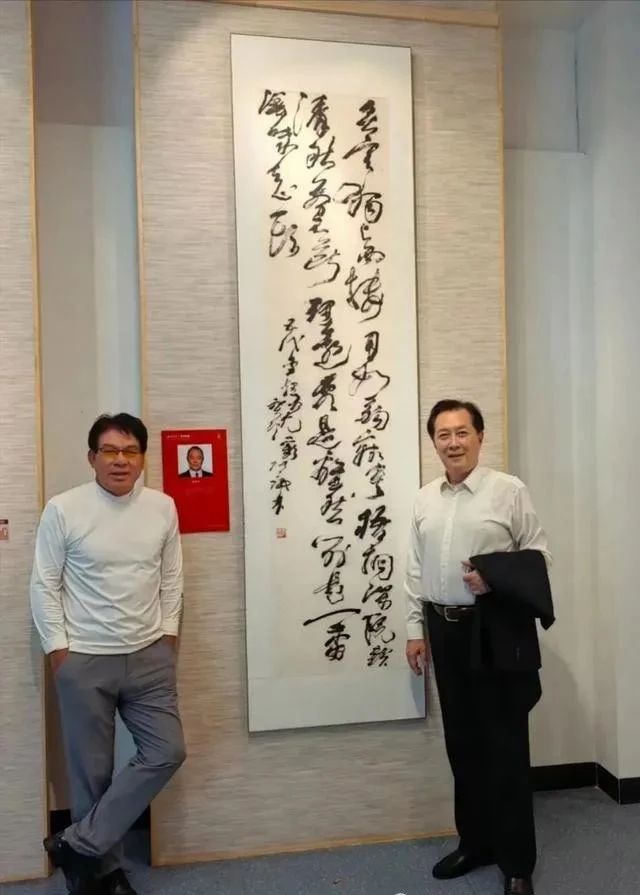 無言獨上西樓月如鈎寂寞梧桐深院鎖
清秋剪不斷理還亂是離愁別是一番
滋味在心頭
五代李煜